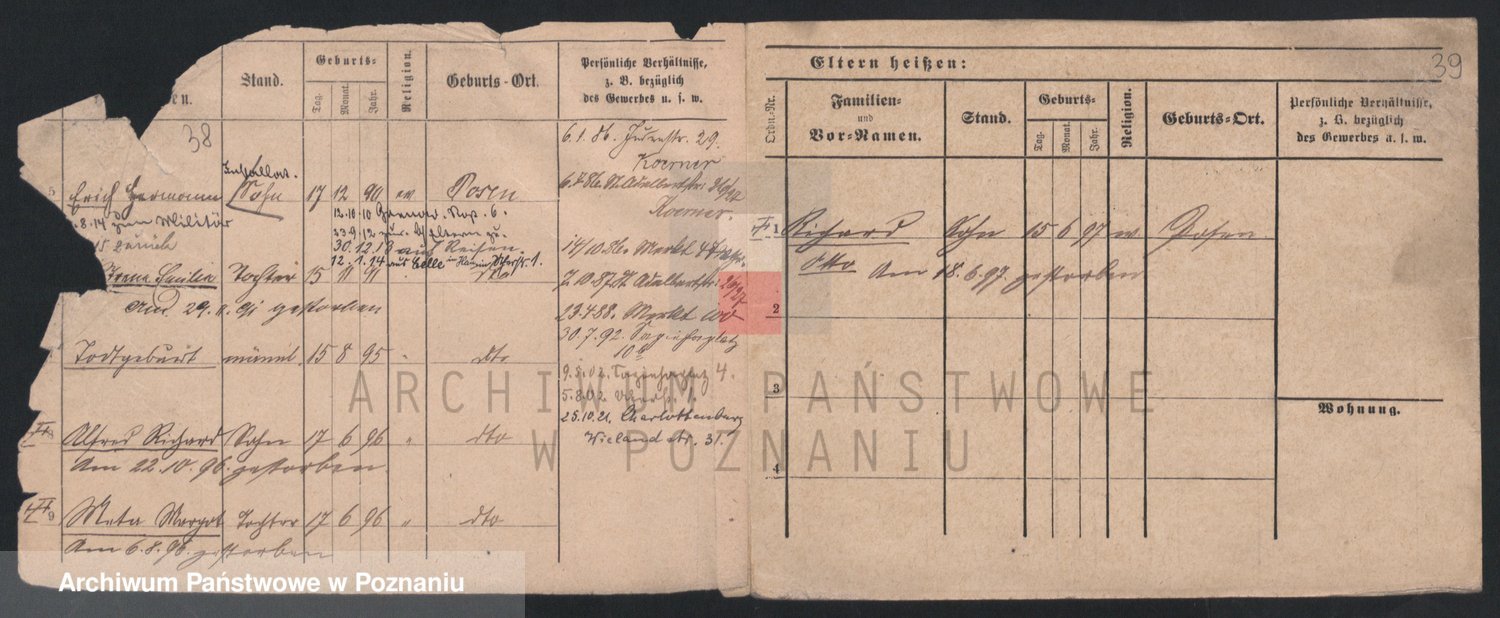 38
en.
Stand.
Geburts-
Tag.
Monat.
Jahr.
Religion.
Geburts-Ort.
Persönliche Verhältnisse,
z. B. bezüglich
des Gewerbes u. s. w.
5 Erich Hermann Sohn 17 12 90 ev Posen
8.14 zum Militär
15 zurück
30.12.13 auf Reisen.
12.1.14 aus Celle
Tochter 15 11 91 dto
Am 29. 11. 91 gestorben
Todtgeburt männl 15 8 95 " dto
Alfred Richard Sohn 17 6 96 " dto
Am 22.10.96. gestorben
9 Meta Margot Tochter 17 6 96 " dto
Am 6.8.96. gestorben
6.1.86. 29.
Koerner
6.4.86. St. Adalbertstr.
Koerner.
14/10.86. Markt
7.10.87. St. Adalbertstr.
23.4.88. Markt 100
30.7.92. Sapiehaplatz
10b
9.5.02. Sapiehaplatz 4.
5.8.02.
25.10.21. Charlottenberg
Wieland str. 31.
39
Eltern heißen:
Ordn.-Nr.
Familien-
und
Vor-Namen.
Stand.
Geburts-
Tag.
Monat.
Jahr.
Religion.
Geburts-Ort.
Persönliche Verhältnisse,
z. B. bezüglich
des Gewerbes u. s. w.
1 Richard Sohn 15 6 97 Posen
Otto Am 18.6.97. gestorben
2
3
4
Wohnung.
ARCHIWUM PAŃSTWOWE
W POZNANIU
Archiwum Państwowe w Poznaniu